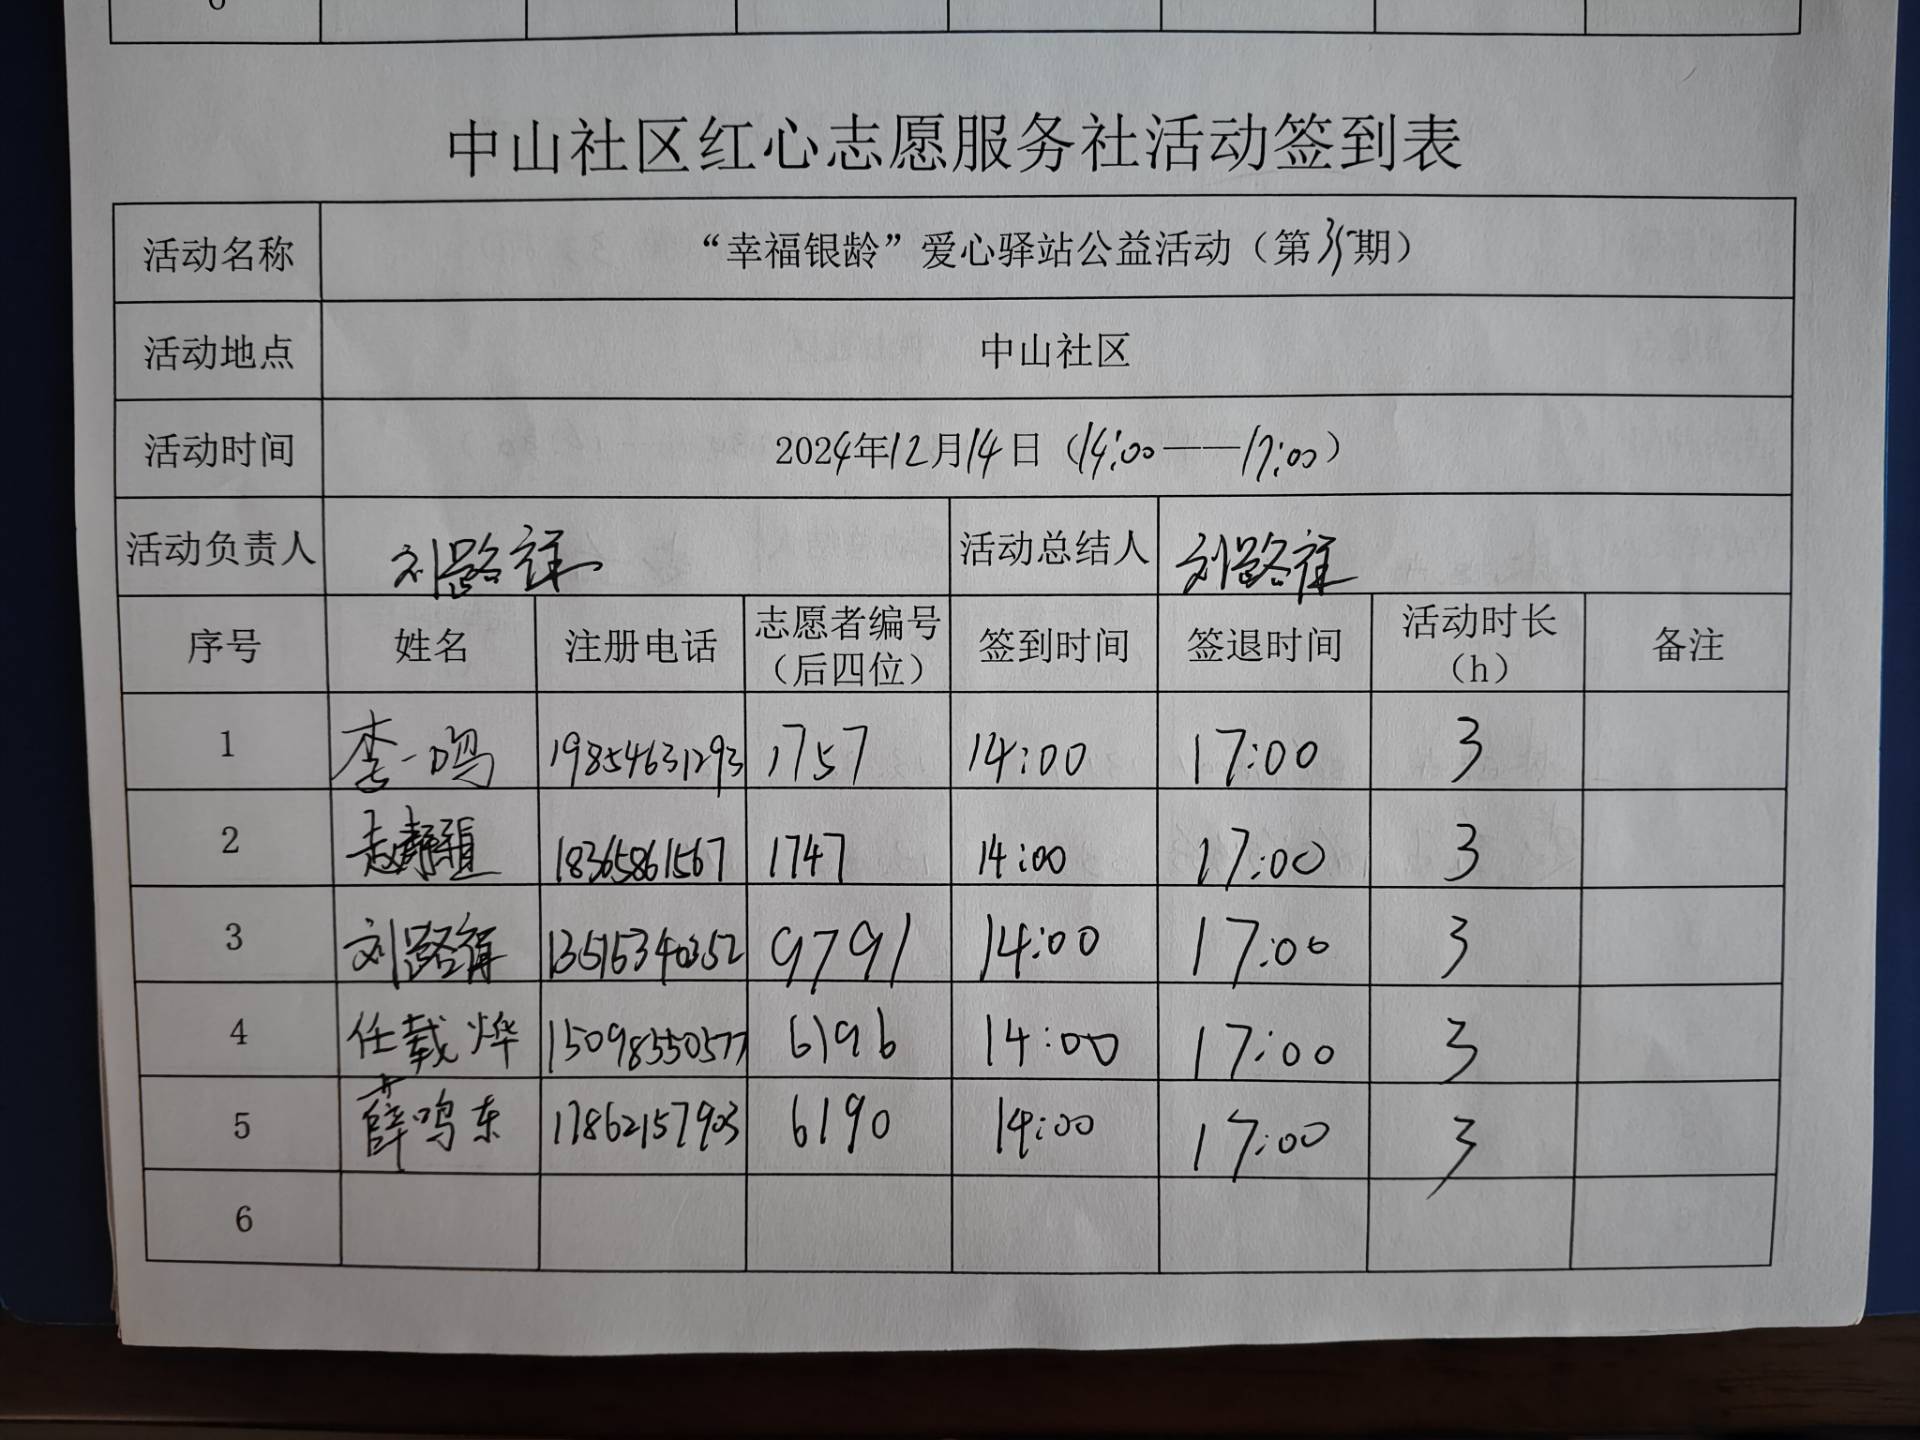 中山社区红心志愿服务社活动签到表
活动名称 “幸福银龄”爱心驿站公益活动（第35期）
活动地点 中山社区
活动时间 2024年12月14日（14:00——17:00）
活动负责人 刘路祥 活动总结人 刘路祥
序号 姓名 注册电话 志愿者编号（后四位） 签到时间 签退时间 活动时长（h） 备注
1 李一鸣 19854631293 1757 14:00 17:00 3
2 赵静植 18365861567 1747 14:00 17:00 3
3 刘路祥 13515340352 9791 14:00 17:00 3
4 任载烨 15098550577 6196 14:00 17:00 3
5 薛鸣东 17862157903 6190 14:00 17:00 3
6